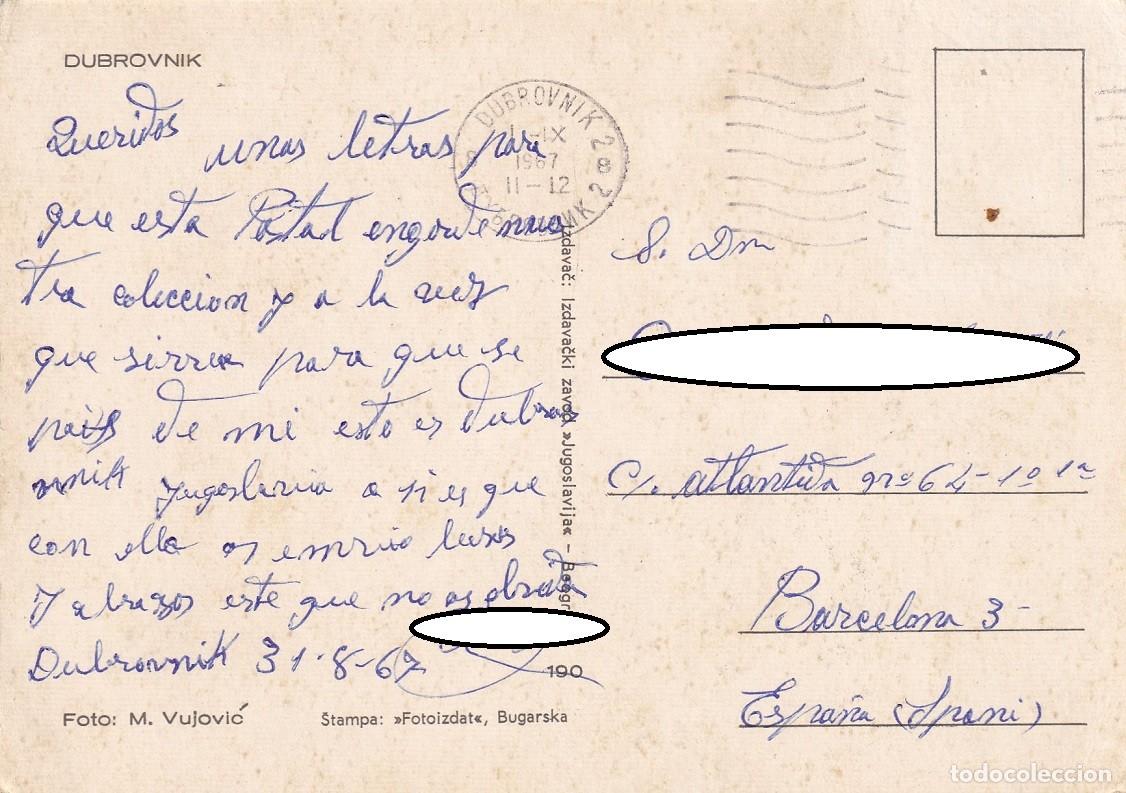 DUBROVNIK
Queridos
unas letras para
que esta Postal engorde nues
tra coleccion y a la vez
que sirva para que se
pais de mi esto es Dubro
vnik Yugoslavia a si es que
con ella os envio besos
y abrazos este que no os olvida
Dubrovnik 31-8-67
Foto: M. Vujović
Štampa: »Fotoizdat«, Bugarska
190
Izdavač: Izdavački zavod »Jugoslavija« – Beogr
DUBROVNIK 2
1-IX
1967
8
11-12
S. Dn
C/. Atlantida nº 62-1º 1ª
Barcelona 3-
España (Spani)
todocoleccion